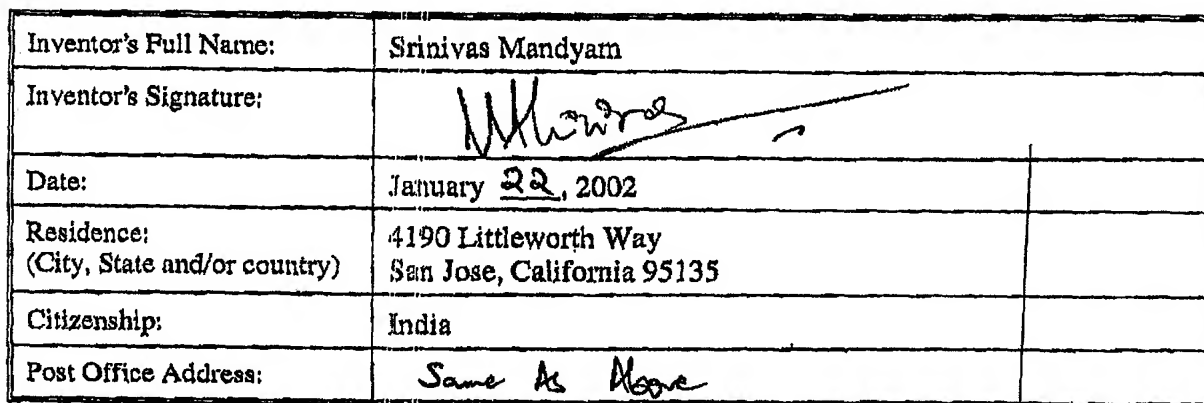 Inventor's Full Name: Srinivas Mandyam
Inventor's Signature:
Date: January 22, 2002
Residence: 4190 Littleworth Way
(City, State and/or country) San Jose, California 95135
Citizenship: India
Post Office Address: Same As Above